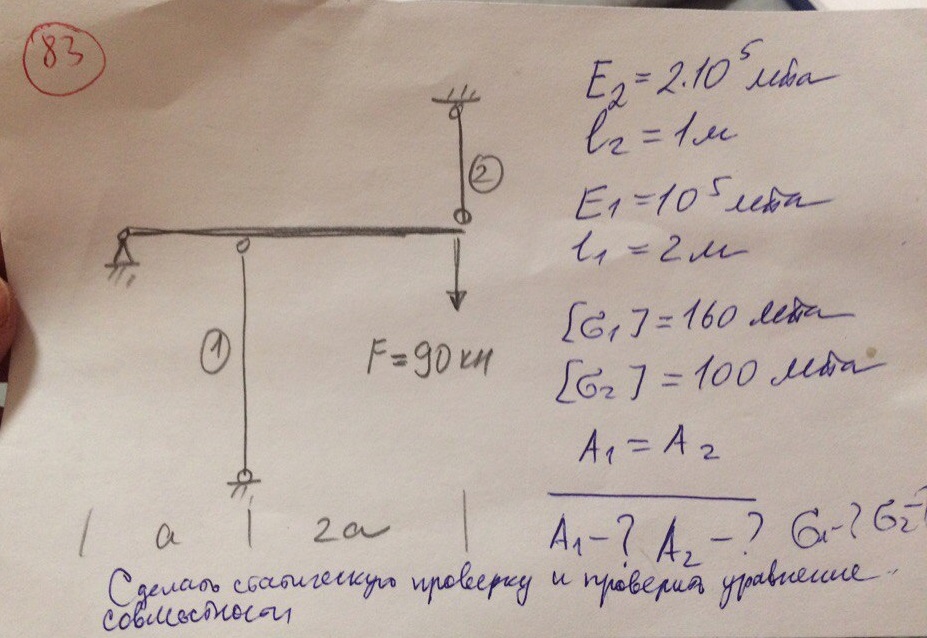 83
E₂ = 2·10⁵ мПа
l₂ = 1м
E₁ = 10⁵ мПа
l₁ = 2м
[σ₁] = 160 мПа
[σ₂] = 100 мПа
A₁ = A₂
A₁-? A₂-? σ₁-? σ₂-?
②
①
F=90кН
a 2a
Сделать статическую проверку и проверить уравнение
совместности